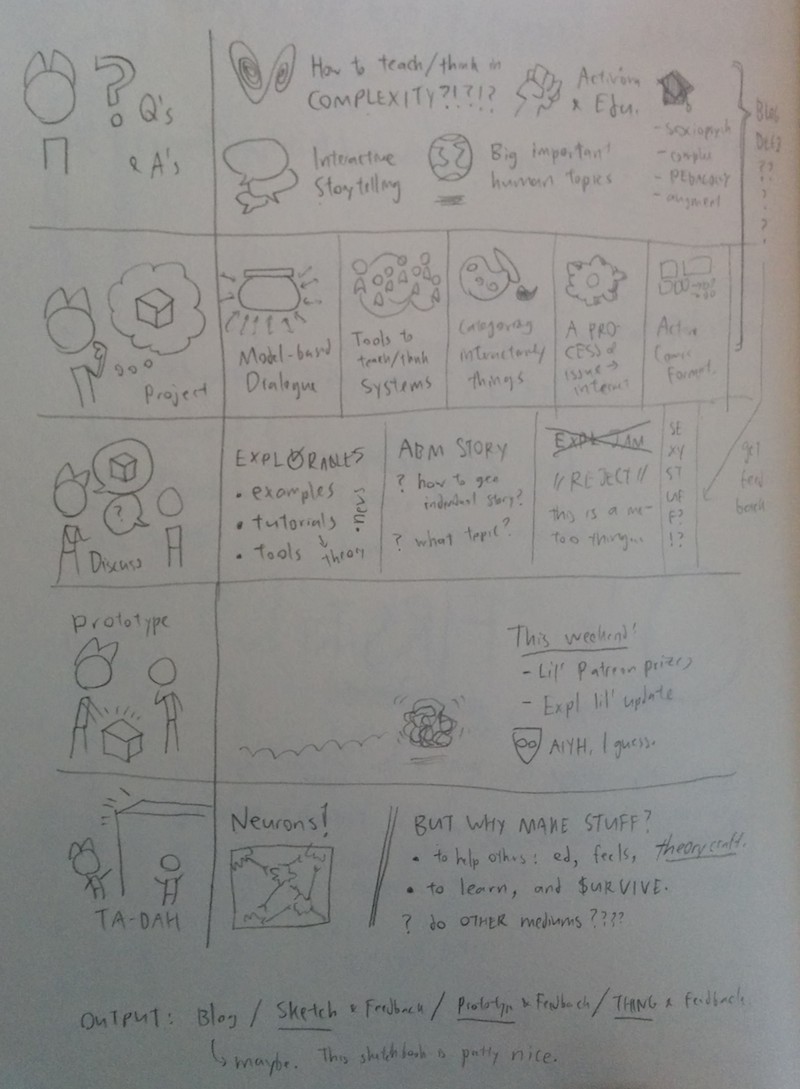 Q's
& A's
How to teach/think in
COMPLEXITY?!?!?
Activism
& Edu.
Interactive
Storytelling
Big important
human topics
- sociopsych
- complex
- PEDAGOGY
- augment
Blog
??
?
?
Project
Model-based
Dialogue
Tools to
teach/think
Systems
Categorizing
interactivity
things
A PRO-
CESS of
issue →
interact
Active
Comic
Format.
Discuss
?
EXPLORABLES
• examples
• tutorials
• tools
↓
theory
• news
ABM STORY
? how to geo
individual story?
? what topic?
EXPL JAM
// REJECT //
this is a me-
too thing...
SE
XY
ST
UF
F?
!?
get
feed
back
Prototype
This weekend!
- Lil' Patreon prizes
- Expl lil' update
AIYH, I guess.
TA-DAH
Neurons!
BUT WHY MAKE STUFF?
• to help others: ed, feels, theorycraft.
• to learn, and $URVIVE.
? do OTHER mediums????
OUTPUT: Blog / Sketch & Feedback / Prototype & Feedback / THING & Feedback
↳ maybe. This sketchbook is pretty nice.